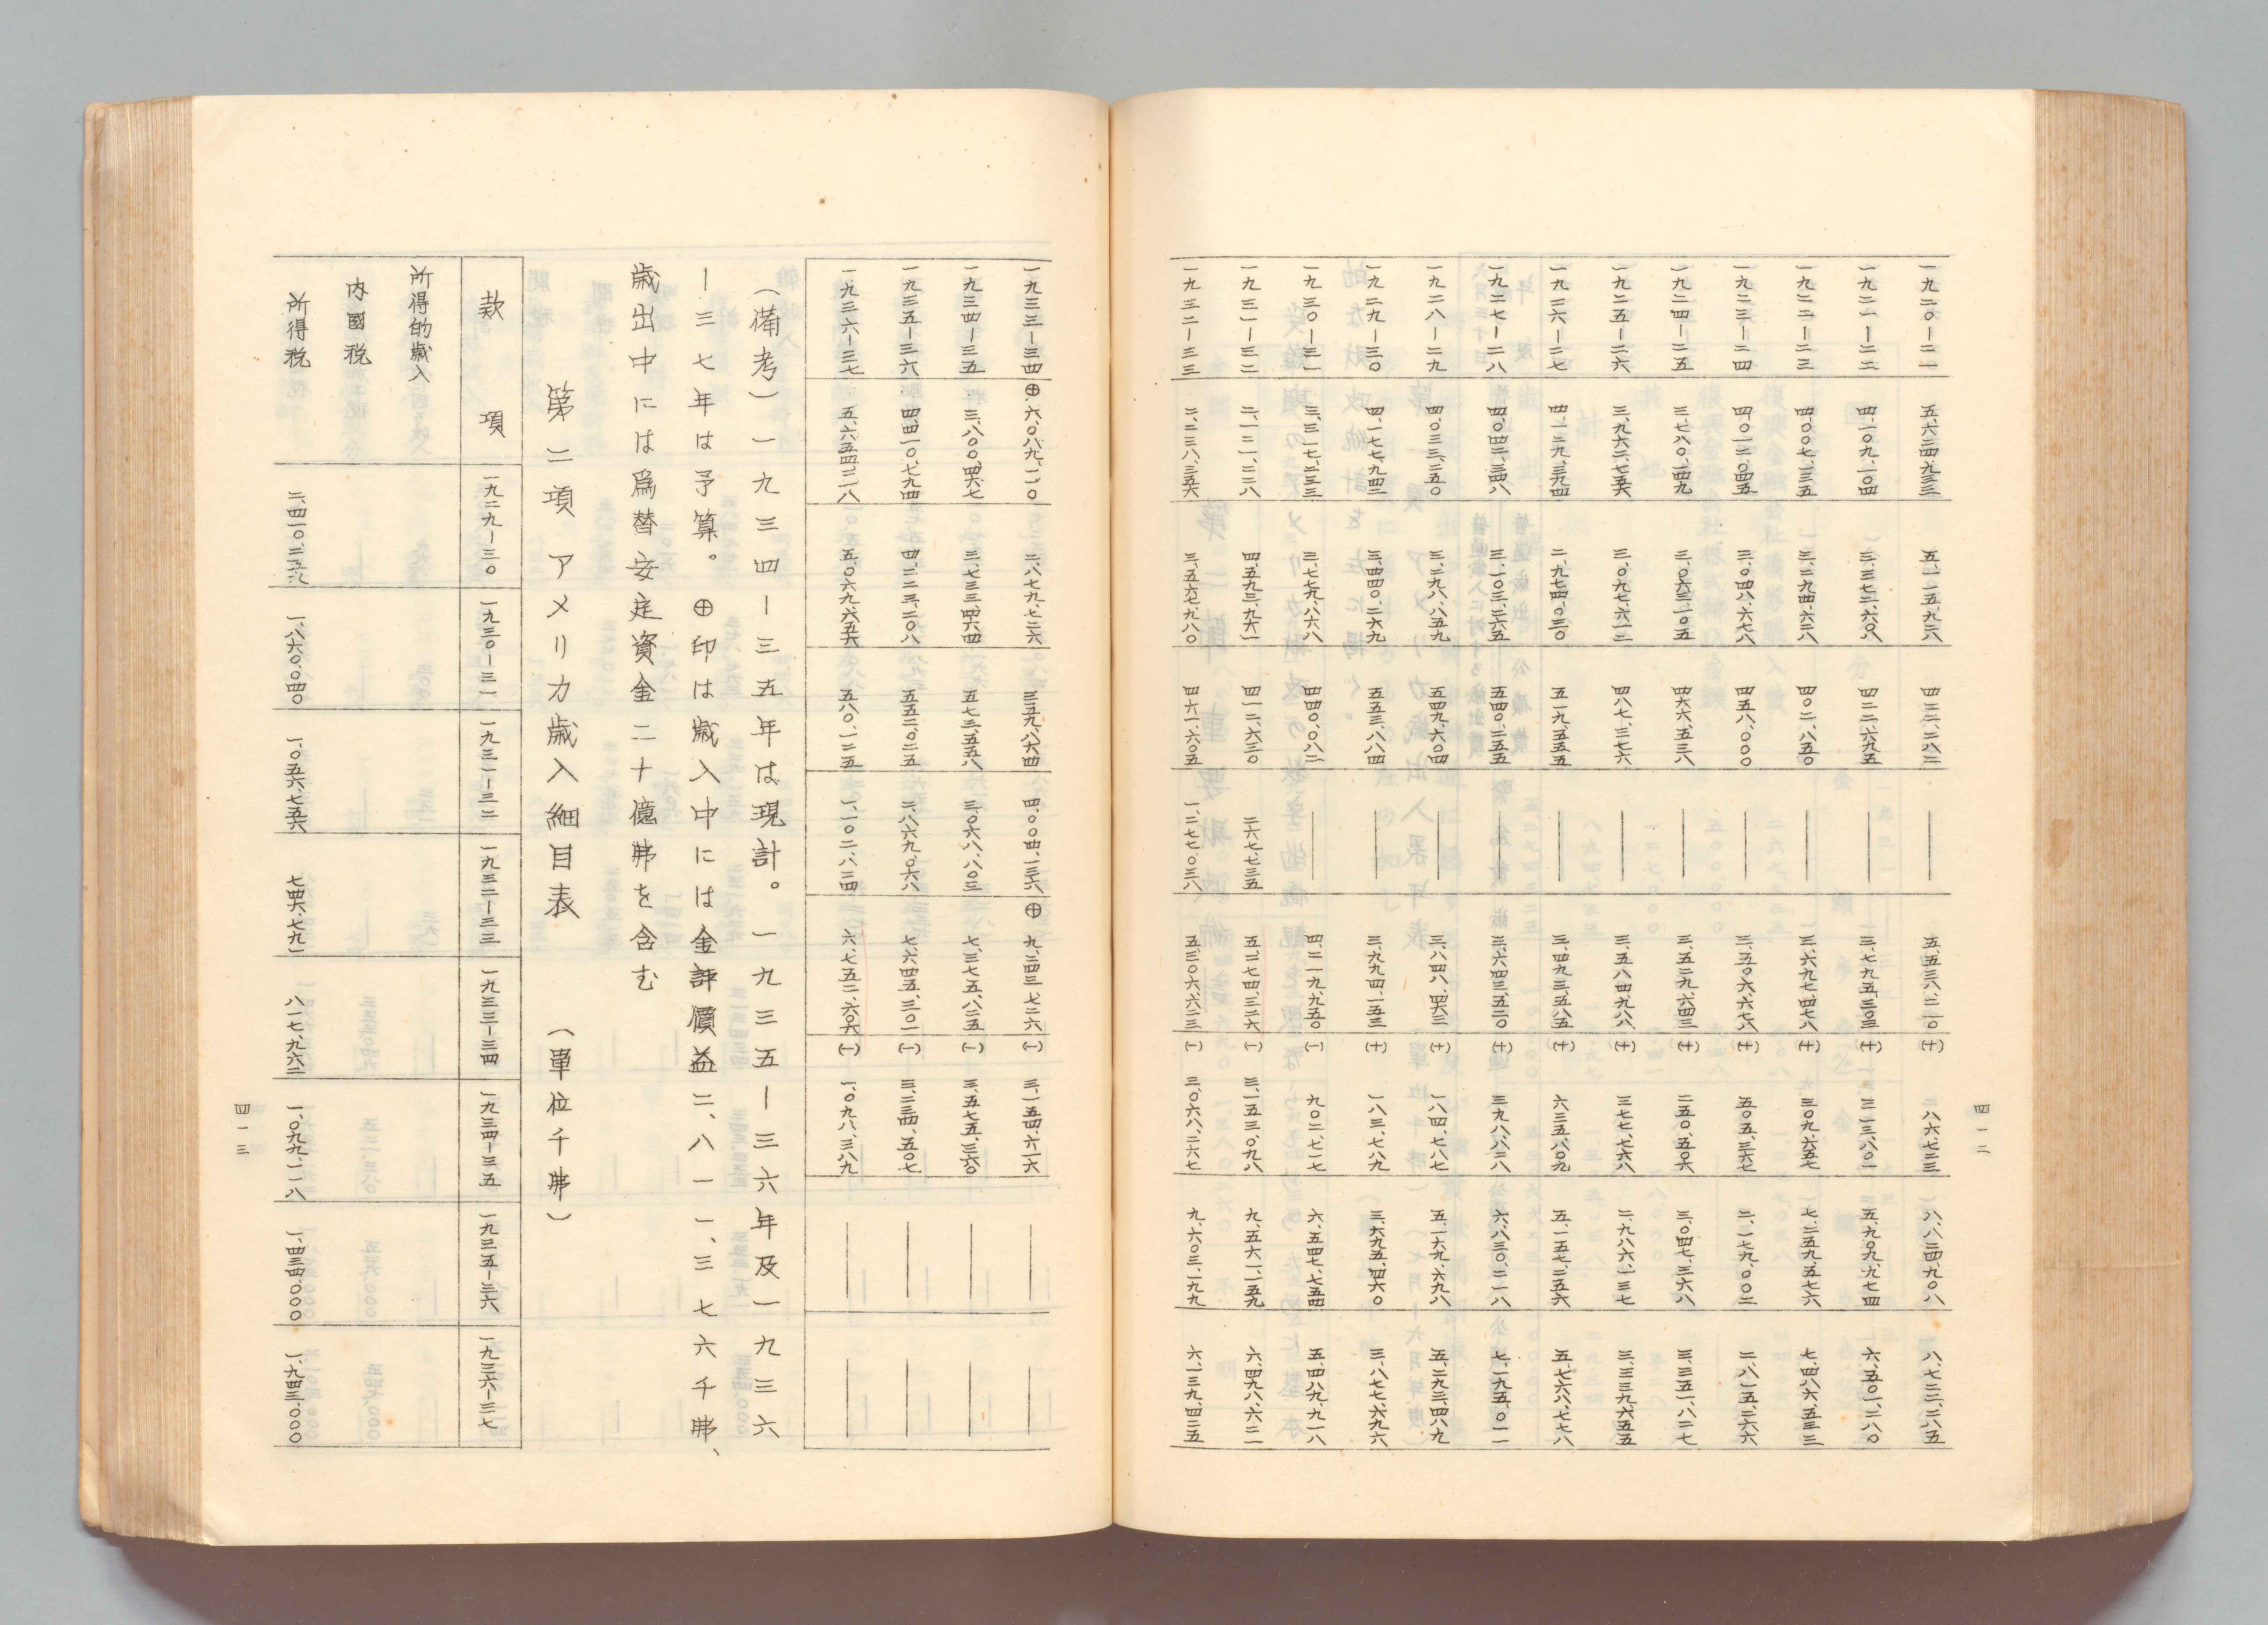 四一二
一九二〇ー二一 五、六二四、九三三 五、一一五、九二八 四二二、二八二 ― 五、五三八、二一〇 (十) 二八六、七二三 八、八二四、九〇八 八、七二二、二八五
一九二一ー二二 四、一〇九、一〇四 三、三七二、六〇八 四二二、六九五 ― 三、七九五、三〇三 (十) 三一三、八〇一 五、九〇九、九七四 六、五〇一、二八〇
一九二二ー二三 四、〇〇七、一三五 三、二九四、六二八 四〇二、八五〇 ― 三、六九七、四七八 (十) 三〇九、六五七 七、二五九、五七六 七、四八六、五三三
一九二三ー二四 四、〇一二、〇四五 三、〇四八、六七八 四五八、〇〇〇 ― 三、五〇六、六七八 (十) 五〇五、三六七 二、一七九、〇〇二 二、八一五、二六六
一九二四ー二五 三、七八〇、一四九 三、〇六三、一〇五 四六六、五三八 ― 三、五二九、六四三 (十) 二五〇、五〇六 三、〇四七、三六八 三、三五一、八二七
一九二五ー二六 三、九六二、七五六 三、〇九七、六一二 四八七、三七六 ― 三、五八四、九八八 (十) 三七七、七六八 二、九八六、一三七 三、三三九、六五五
一九二六ー二七 四、一二九、三九四 二、九七四、〇三〇 五一九、五五五 ― 三、四九三、五八五 (十) 六三五、八〇九 五、一五七、二五六 五、七六八、七七八
一九二七ー二八 四、〇四二、三四八 三、一〇三、二六五 五四〇、二五五 ― 三、六四三、五二〇 (十) 三九八、八二八 六、八三〇、二一八 七、一九五、〇一一
一九二八ー二九 四、〇三三、二五〇 三、二九八、八五九 五四九、六〇四 ― 三、八四八、四六三 (十) 一八四、七八七 五、一六九、六九八 五、二九三、四八九
一九二九ー三〇 四、一七七、九四二 三、四四〇、二六九 五五三、八八四 ― 三、九九四、一五三 (十) 一八三、七八九 三、六九五、四六〇 三、八七七、六九六
一九三〇ー三一 三、三一七、二三三 三、七七九、八六八 四四〇、〇八二 ― 四、二一九、九五〇 (一) 九〇二、七一七 六、五四七、七五四 五、四八九、九一八
一九三一ー三二 二、一二一、二二八 四、五九三、九六一 四一二、六三〇 二六七、七三五 五、二七四、三二六 (一) 三、一五三、〇九八 九、五六一、一五九 六、四九八、六二二
一九三二ー三三 二、二三八、三五六 三、五六七、九八〇 四六一、六〇五 一、二七七、〇三八 五、三〇六、六二三 (一) 三、〇六八、二六七 九、六〇三、一九九 六、一三九、四二五
一九三三ー三四 ⊕六、〇八九、一一〇 二、八七九、七二六 三五九、八六四 四、〇〇四、一三六 ⊕九、二四三、七二六 (一) 三、一五四、六一六 ― ―
一九三四ー三五 三、八〇〇、四六七 三、七三三、四六四 五七三、五五八 三、〇六八、八〇三 七、三七五、八二五 (一) 三、五七五、三六〇 ― ―
一九三五ー三六 四、四一〇、七九四 四、二二三、二〇八 五五二、〇二五 二、八六九、〇六八 七、六四五、三〇一 (一) 三、二三四、五〇七 ― ―
一九三六ー三七 五、六五四、二一八 五、〇六九、六五六 五八〇、一二五 一、一〇二、八二四 六、七五二、六〇六 (一) 一、〇九八、三八九 ― ―
（備考）一九三四ー三五年は現計。一九三五ー三六年及一九三六
ー三七年は予算。⊕印は歳入中には金評價益二、八一一、三七六千弗、
歳出中には爲替安定資金二十億弗を含む
第二項 アメリカ歳入細目表 （單位千弗）
款 項 一九二九ー三〇 一九三〇ー三一 一九三一ー三二 一九三二ー三三 一九三三ー三四 一九三四ー三五 一九三五ー三六 一九三六ー三七
所得的歳入
内國税
所得税 二、四一〇、二五九 一、八六〇、〇四〇 一、〇五六、七五六 七四六、七九一 八一七、九六二 一、〇九九、一一八 一、四三四、〇〇〇 一、九四三、〇〇〇
四一三